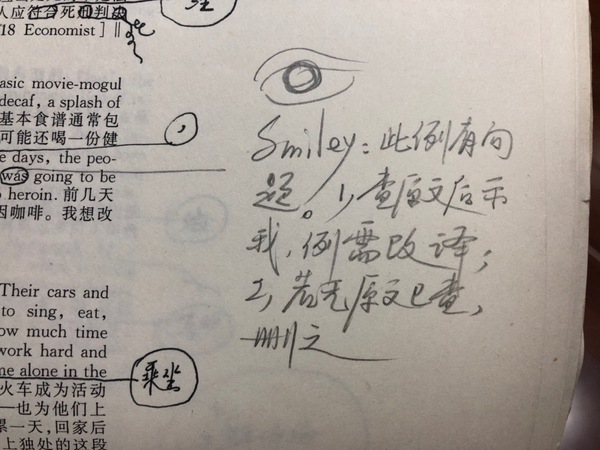 人应符合死刑判决
/18 Economist] ‖
坐
asic movie-mogul
decaf, a splash of
基本食谱通常包
可能还喝一份健
e days, the peo-
was going to be
o heroin. 前几天
因咖啡。我想改
,
Smiley：此例有问
题。1，查原文后示
我，例需改译；
2，若无原文已查，
删之
Their cars and
to sing, eat,
ow much time
work hard and
me alone in the
火车成为活动
—也为他们上
累一天，回家后
上独处的这段
乘坐